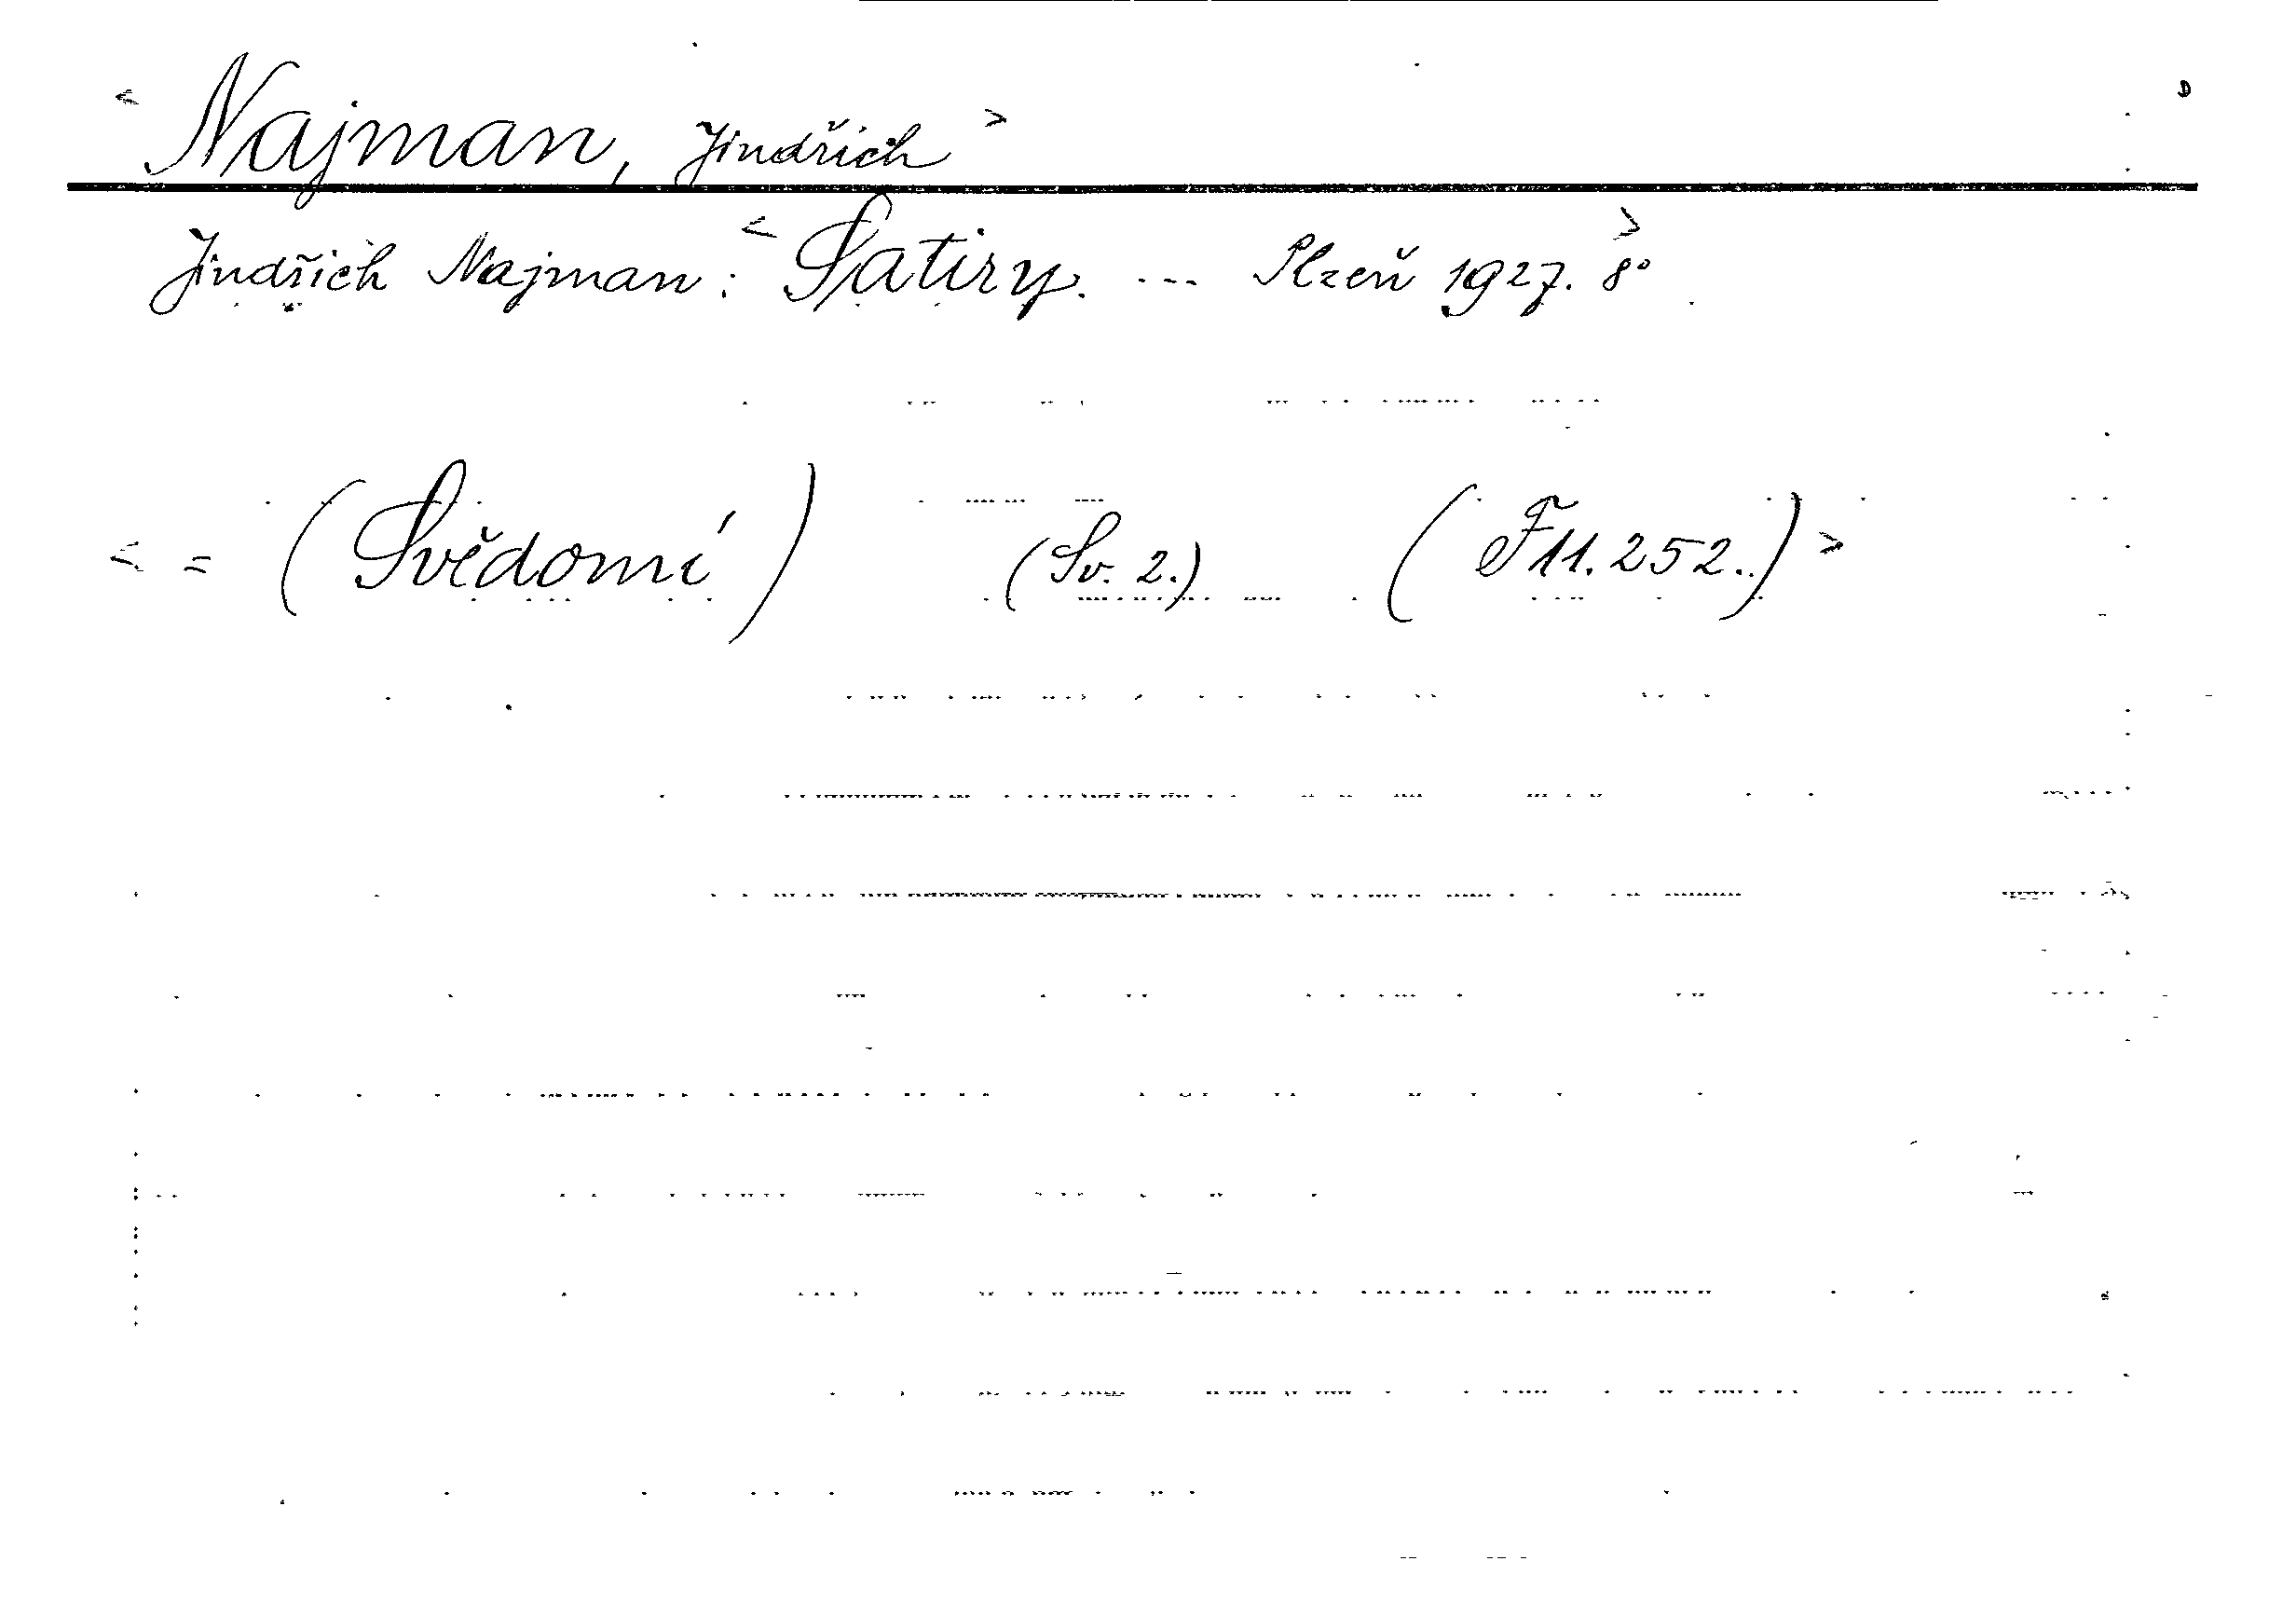 < Najman, Jindřich > D
Jindřich Najman: < Satiry. --- Plzeň 1927. 8° >
< = (Svědomí) (Sv. 2.) (F 11.252.) >